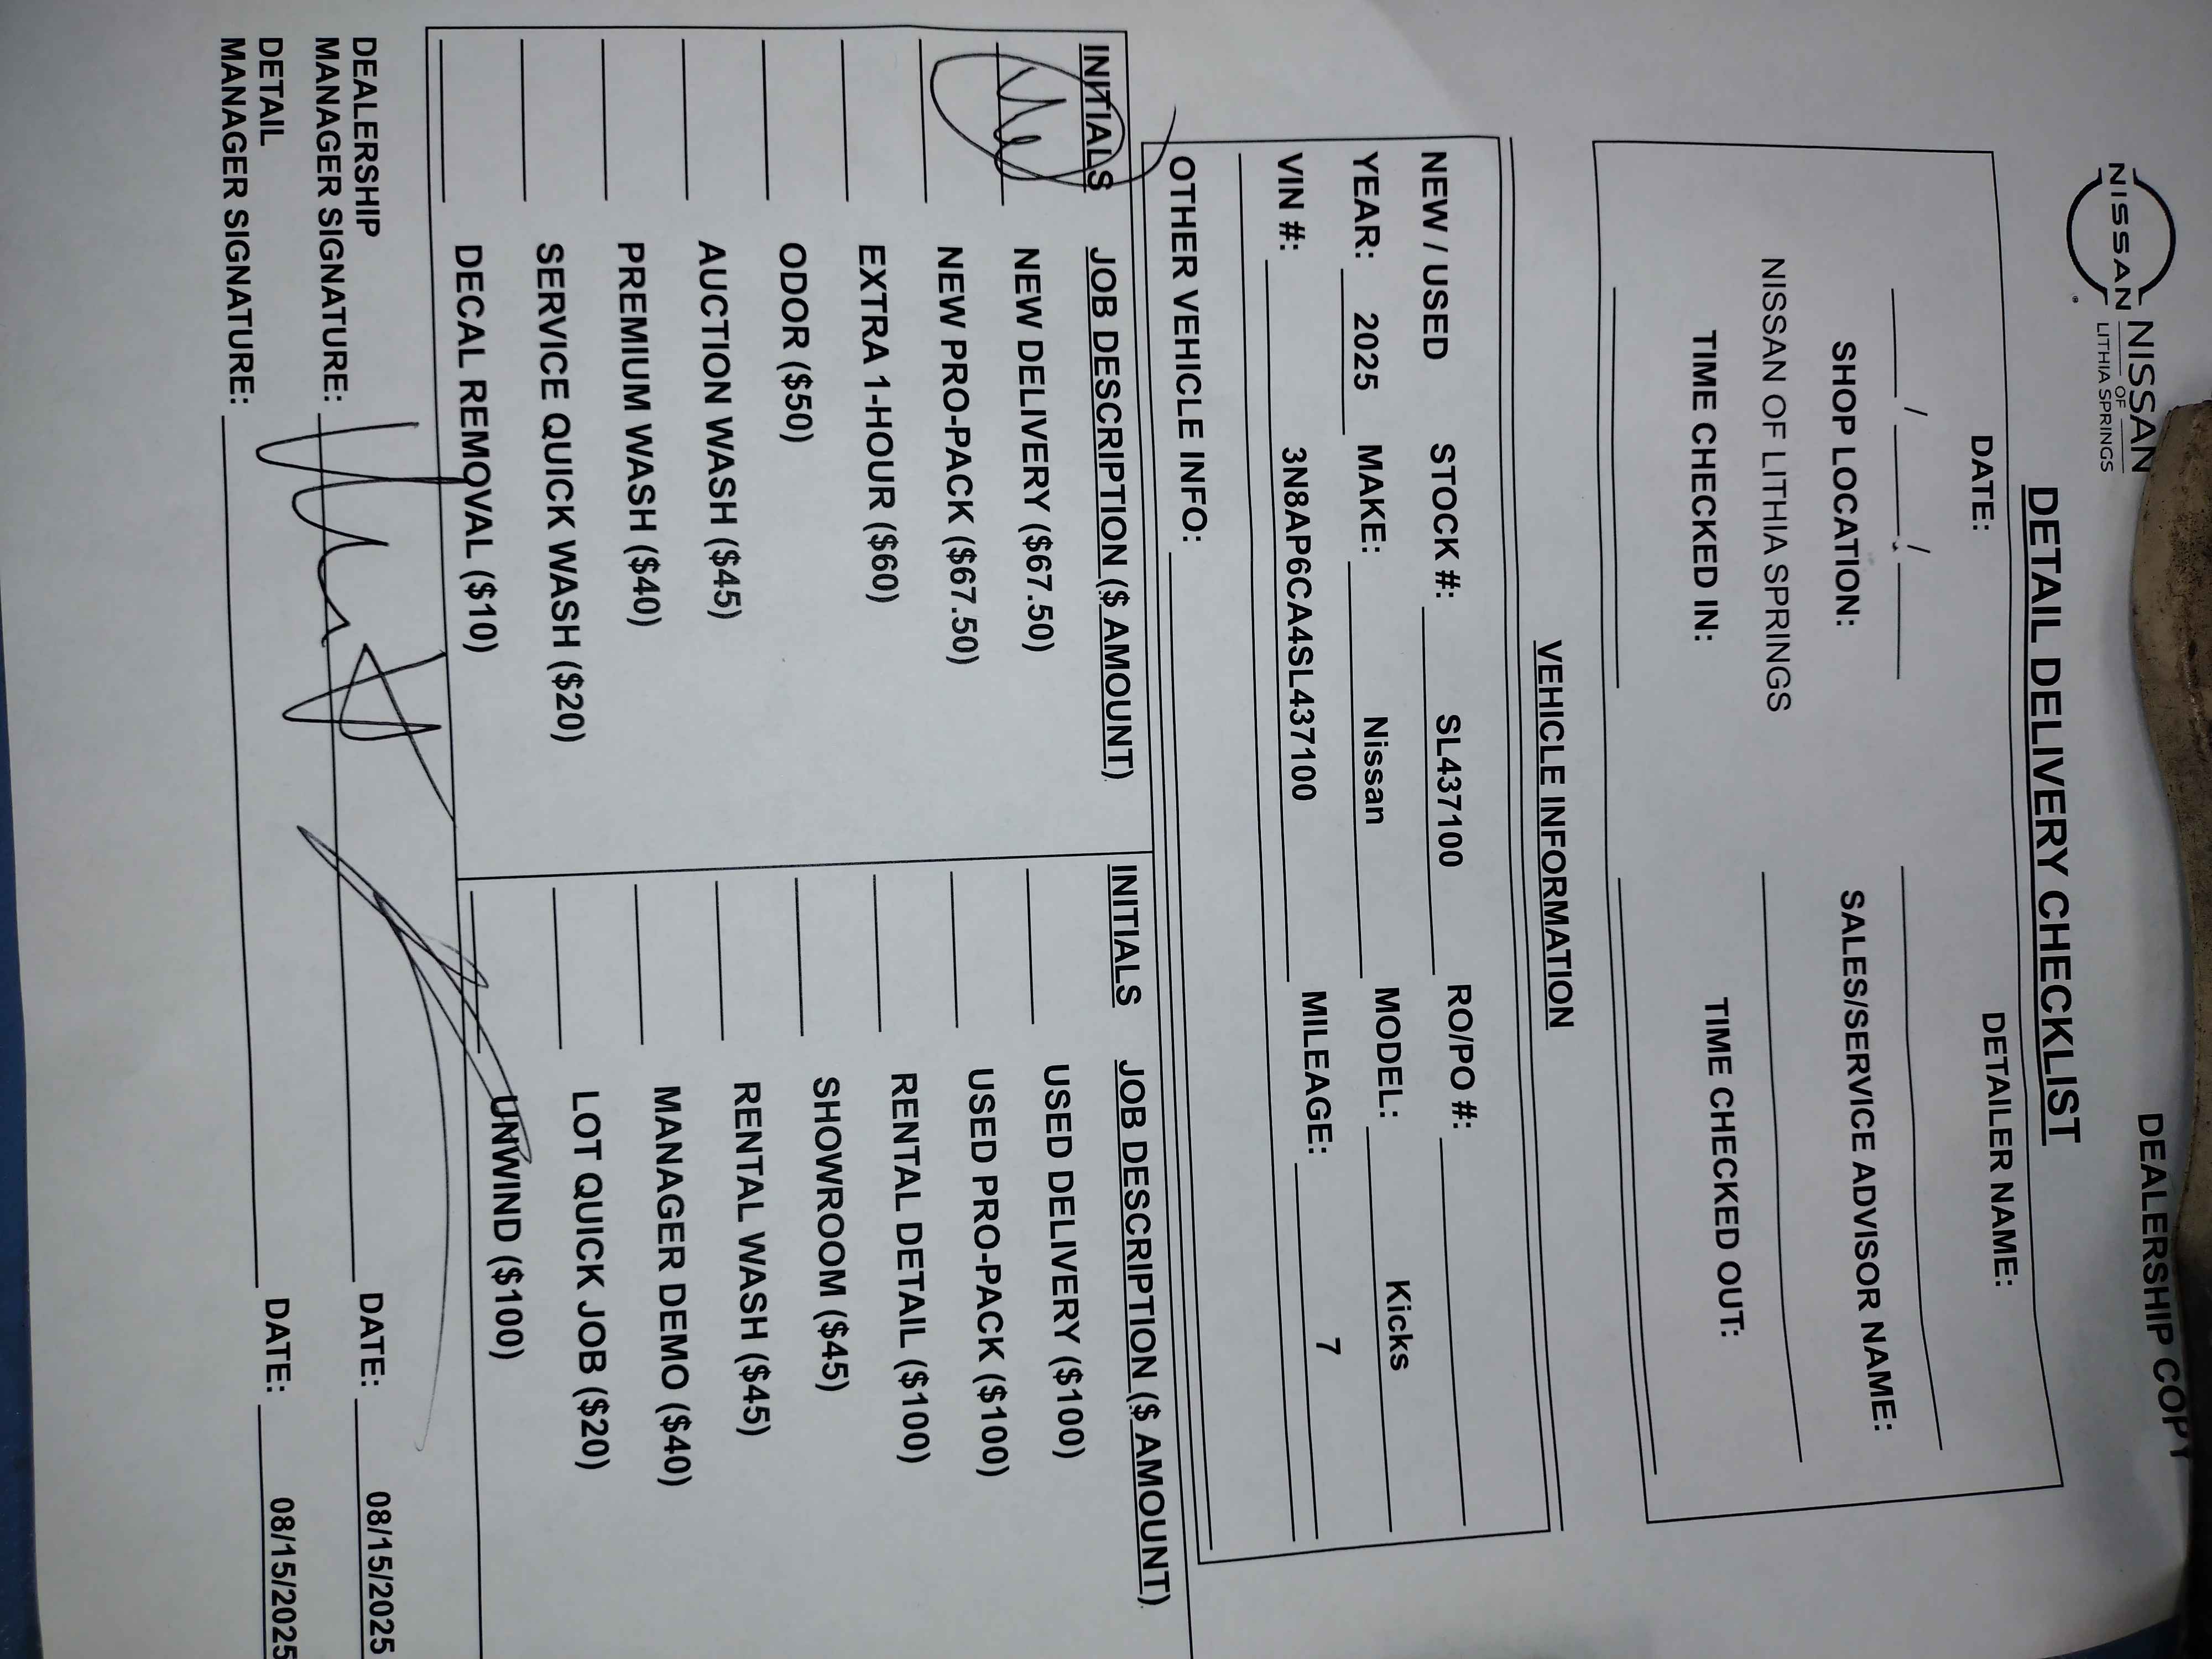 DEALERSHIP COPY
NISSAN NISSAN
OF
LITHIA SPRINGS
DETAIL DELIVERY CHECKLIST
DATE: DETAILER NAME:
/ /
SHOP LOCATION: SALES/SERVICE ADVISOR NAME:
NISSAN OF LITHIA SPRINGS
TIME CHECKED IN: TIME CHECKED OUT:
VEHICLE INFORMATION
NEW / USED STOCK #: SL437100 RO/PO #:
YEAR: 2025 MAKE: Nissan MODEL: Kicks
VIN #: 3N8AP6CA4SL437100 MILEAGE: 7
OTHER VEHICLE INFO:
INITIALS JOB DESCRIPTION ($ AMOUNT) INITIALS JOB DESCRIPTION ($ AMOUNT)
NEW DELIVERY ($67.50) USED DELIVERY ($100)
NEW PRO-PACK ($67.50) USED PRO-PACK ($100)
EXTRA 1-HOUR ($60) RENTAL DETAIL ($100)
ODOR ($50) SHOWROOM ($45)
AUCTION WASH ($45) RENTAL WASH ($45)
PREMIUM WASH ($40) MANAGER DEMO ($40)
SERVICE QUICK WASH ($20) LOT QUICK JOB ($20)
DECAL REMOVAL ($10) UNWIND ($100)
DEALERSHIP
MANAGER SIGNATURE: DATE: 08/15/2025
DETAIL
MANAGER SIGNATURE: DATE: 08/15/2025